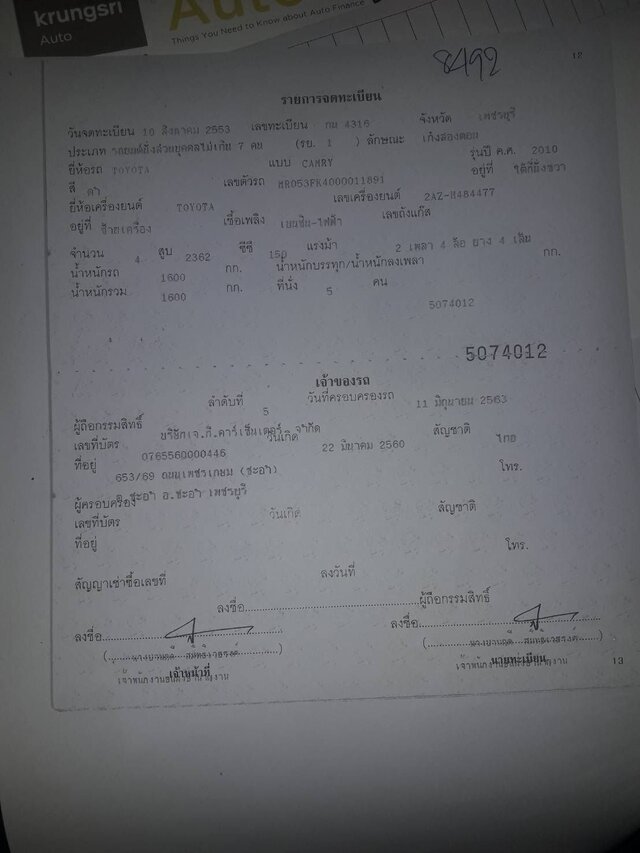 krungsri
Auto
Auto
Things You Need to Know about Auto Finance
8492
12
รายการจดทะเบียน
วันจดทะเบียน 10 สิงหาคม 2553 เลขทะเบียน กน 4316 จังหวัด เพชรบุรี
ประเภท รถยนต์นั่งส่วนบุคคลไม่เกิน 7 คน (รย. 1 ) ลักษณะ เก๋งสองตอน
ยี่ห้อรถ TOYOTA แบบ CAMRY รุ่นปี ค.ศ. 2010
สี ดำ เลขตัวรถ MR053FK4000011891 อยู่ที่ ใต้ที่นั่งขวา
ยี่ห้อเครื่องยนต์ TOYOTA เลขเครื่องยนต์ 2AZ-H484477
อยู่ที่ ซ้ายเครื่อง เชื้อเพลิง เบนซิน-ไฟฟ้า เลขถังแก๊ส
จำนวน 4 สูบ 2362 ซีซี 150 แรงม้า 2 เพลา 4 ล้อ ยาง 4 เส้น
น้ำหนักรถ 1600 กก. น้ำหนักบรรทุก/น้ำหนักลงเพลา กก.
น้ำหนักรวม 1600 กก. ที่นั่ง 5 คน
5074012
5074012
เจ้าของรถ
ลำดับที่ 5 วันที่ครอบครองรถ 11 มิถุนายน 2563
ผู้ถือกรรมสิทธิ์ บริษัทเจ.ที.คาร์เซ็นเตอร์ จำกัด สัญชาติ ไทย
เลขที่บัตร 0765560000446 วันเกิด 22 มีนาคม 2560
ที่อยู่ 653/69 ถนนเพชรเกษม (ชะอำ) โทร.
ต.ชะอำ อ.ชะอำ เพชรบุรี
ผู้ครอบครอง
เลขที่บัตร วันเกิด สัญชาติ
ที่อยู่ โทร.
สัญญาเช่าซื้อเลขที่ ลงวันที่
ลงชื่อ ผู้ถือกรรมสิทธิ์
ลงชื่อ ลงชื่อ
เจ้าหน้าที่ นายทะเบียน
13